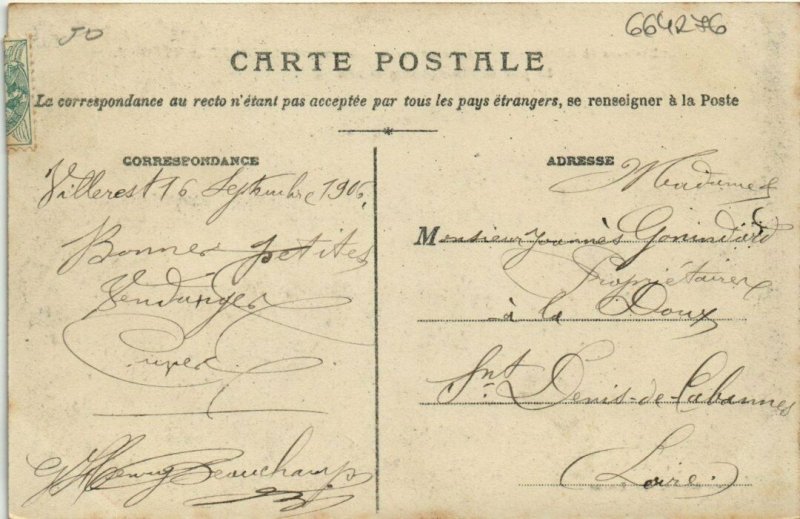 50
664276
CARTE POSTALE
La correspondance au recto n'étant pas acceptée par tous les pays étrangers, se renseigner à la Poste
CORRESPONDANCE
Villerest 16 Septembre 1906
Bonnes petites
Vendanges
Henry Beauchamp
ADRESSE
Madame &
Monsieur Joannès Gonindard
Propriétaires
à la Doux
Snt Denis-de-Cabannes
Loire